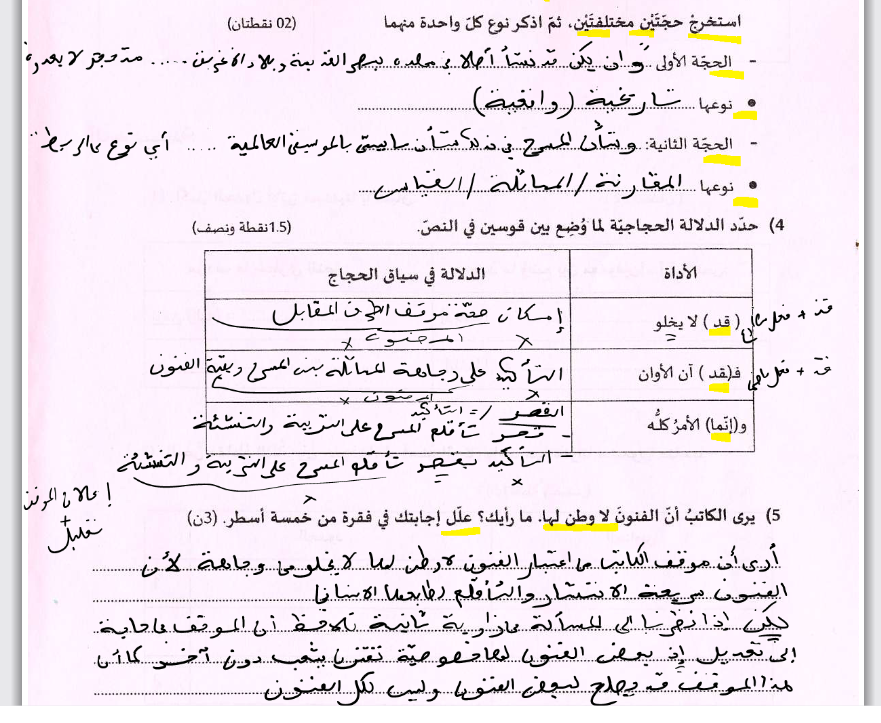 استخرجْ حجّتَيْن مختلفتَيْن، ثمّ اذكر نوع كلّ واحدة منهما (02 نقطتان)
- الحجّة الأولى وإن يكن قد نشأ أصلا في معابد مصر القديمة وبلاد الإغريق .....
• نوعها تاريخية (واقعية)
- الحجّة الثانية: وشأن المسرح في هذا شأن سابيتي بالموسيقى العالمية .....
• نوعها المقارنة / المماثلة / القياس
4) حدّد الدلالة الحجاجيّة لما وُضِع بين قوسين في النصّ. (1.5نقطة ونصف)
الأداة الدلالة في سياق الحجاج
(قد) لا يخلو إمكان صحّة موقف الطرف المقابل
قد + فعل مضارع
المدحوض
ف(قد) آن الأوان التأكيد على وجاهة المماثلة بين المسرح وبقيّة الفنون
قد + فعل ماضي
و(إنّما) الأمرُ كلُّه القصر / = التأكيد
- قصر تأقلم المسرح على التربية والتنشئة
- التأكيد بقصر تأقلم المسرح على التربية والتنشئة
5) يرى الكاتبُ أنّ الفنونَ لا وطن لها. ما رأيك؟ علّل إجابتك في فقرة من خمسة أسطر. (3ن)
إعلان الموقف
+
تعليل
أرى أن موقف الكاتب من اعتبار الفنون لا وطن لها لا يخلو من وجاهة لأن
الفنون سريعة الانتشار والتأقلم لطابعها الإنساني
لكن إذا نظرنا إلى المسألة من زاوية ثانية نلاحظ أن الموقف في حاجة
إلى تعديل إذ بعض الفنون لها خصوصيّة تقترن بشعب دون آخر كما أن
هذا الموقف قد يصلح لبعض الفنون وليس لكل الفنون